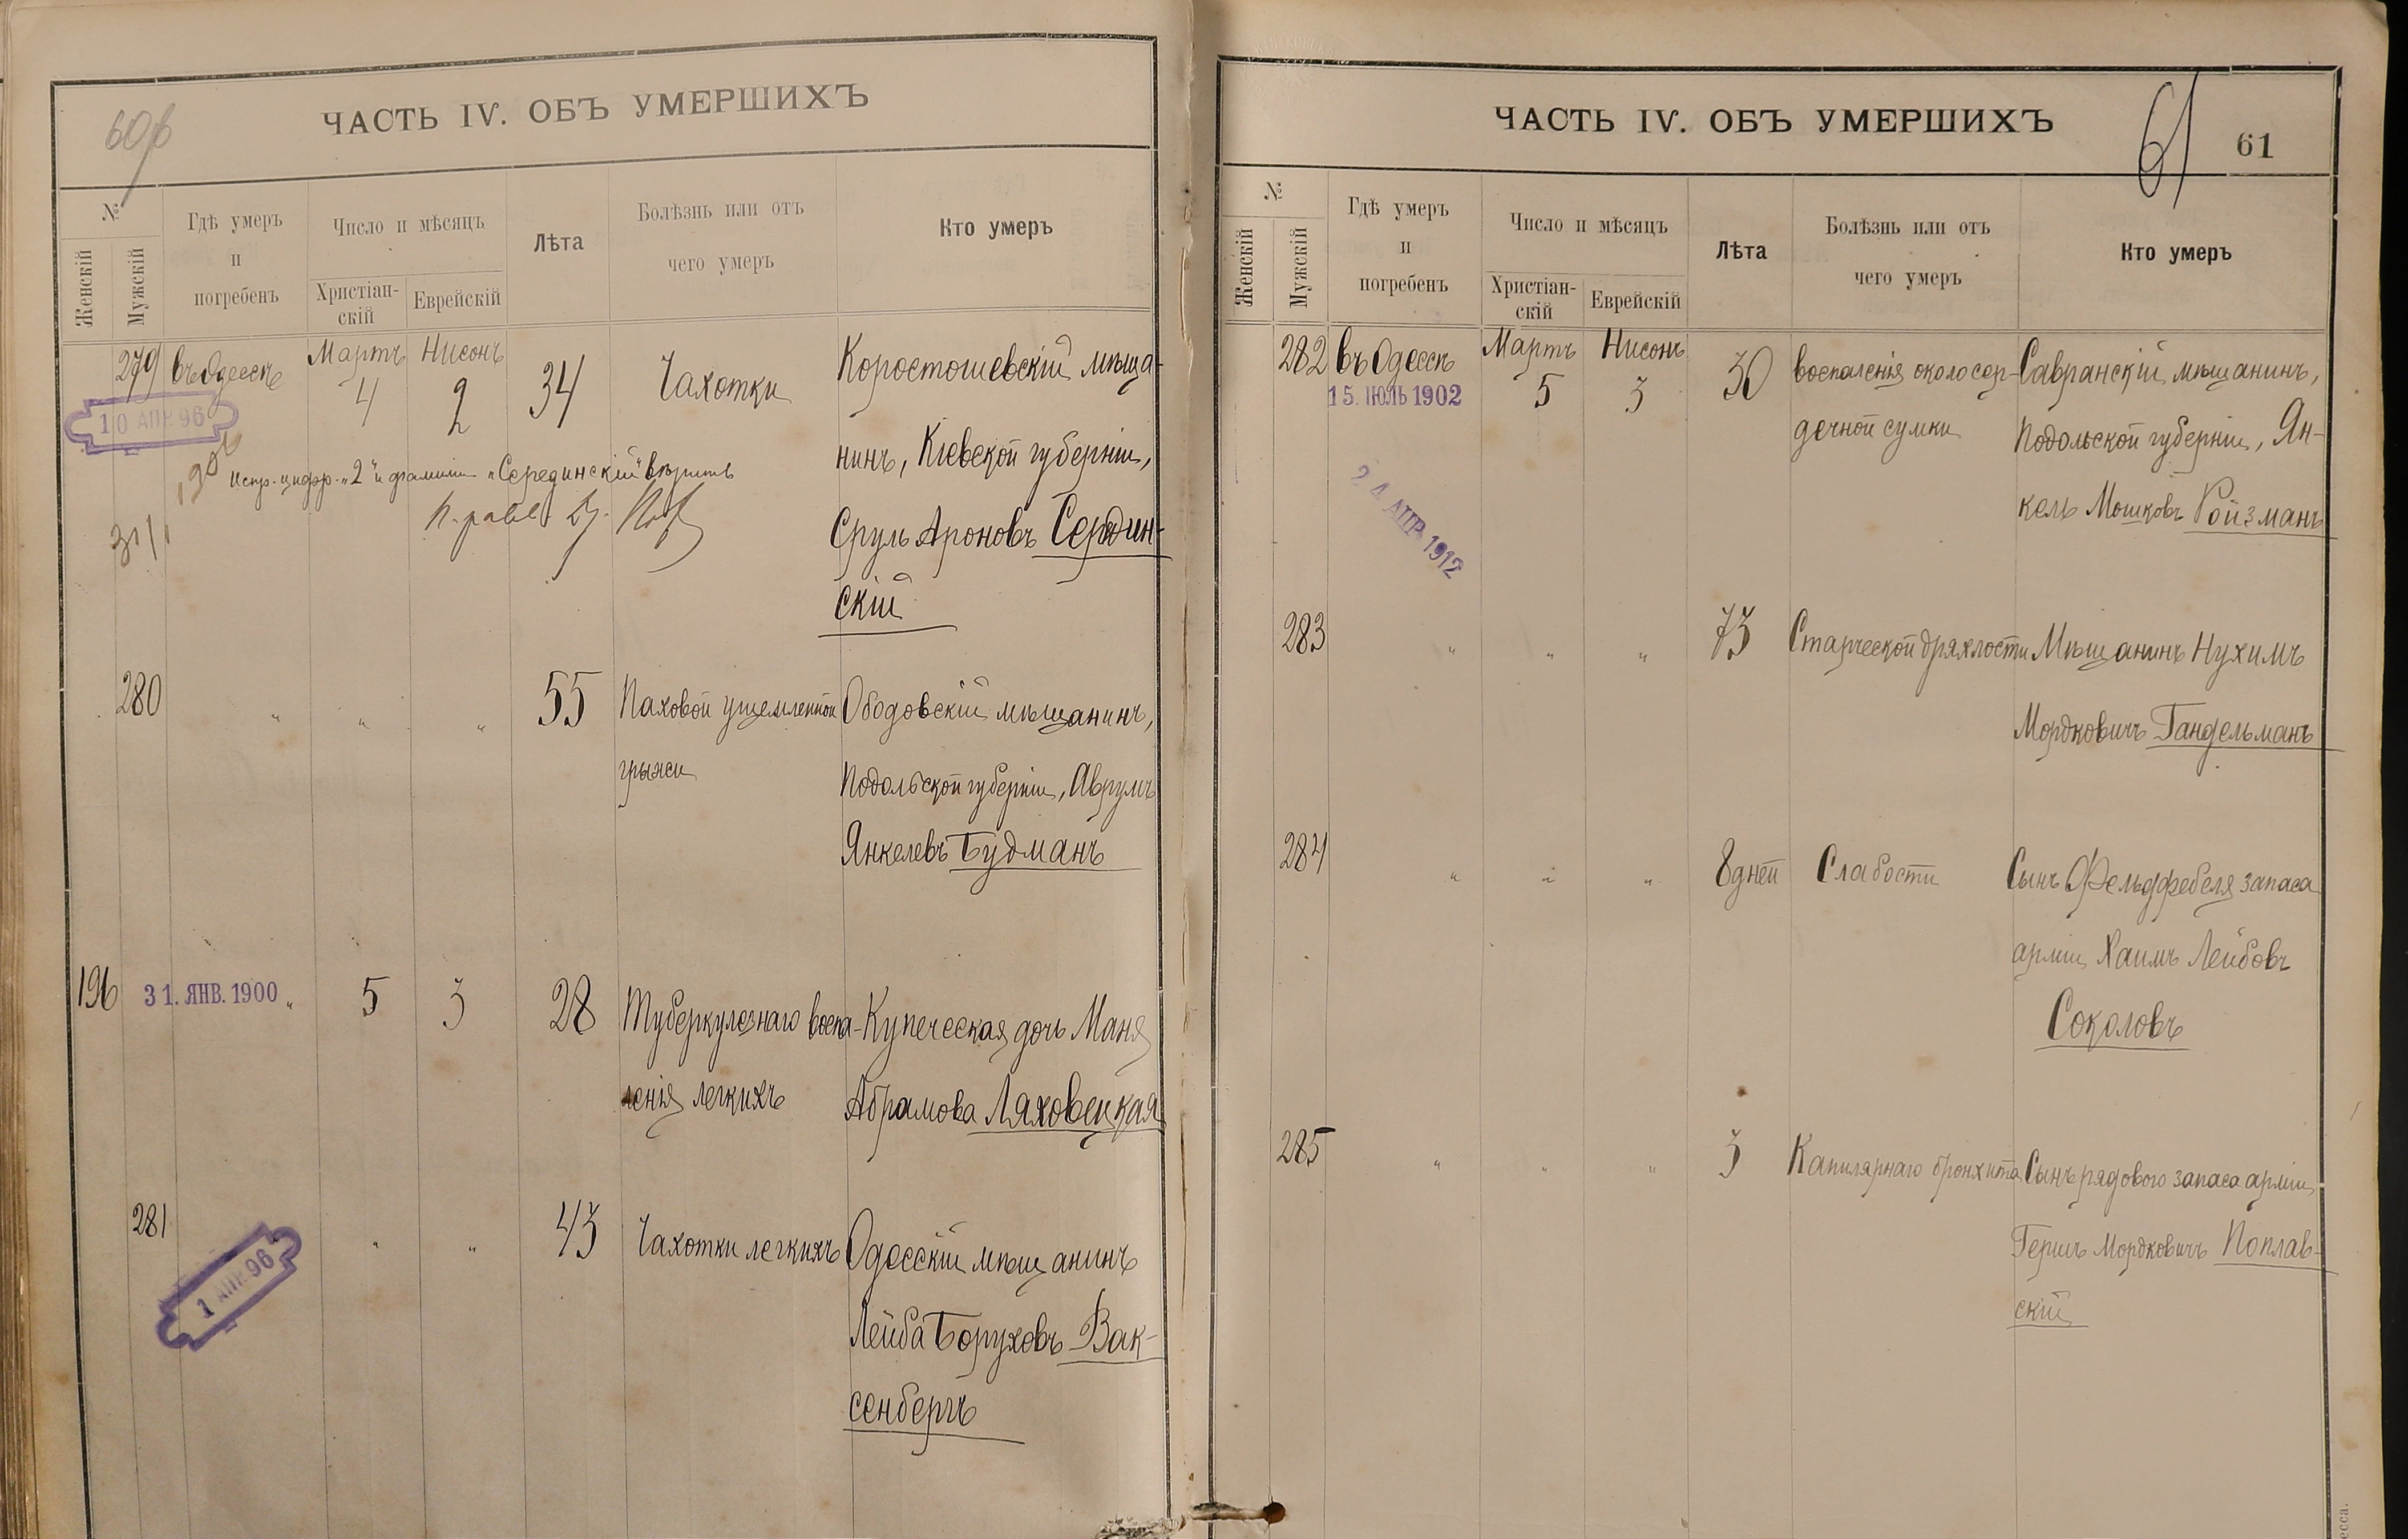 60об
ЧАСТЬ IV. ОБЪ УМЕРШИХЪ
№
Женскій
Мужскій
Гдѣ умеръ
и
погребенъ
Число и мѣсяцъ
Христіан-
скій
Еврейскій
Лѣта
Болѣзнь или отъ
чего умеръ
Кто умеръ
279 въ Одессѣ Мартъ 4 Нисонъ 2 34 Чахотки Коростошевскій мѣща-
10 АПР. 96
нинъ, Кіевской губерніи,
Испр. цифр. „2" и фамиліи „Серединскій" вѣрить
Сруль Ароновъ Середин-
скій
280 " " " 55 Паховой ущемленной Ободовскій мѣщанинъ,
грыжи Подольской губерніи, Аврумъ
Янкелевъ Будманъ
196 31. ЯНВ. 1900 " 5 3 28 Туберкулезнаго воспа- Купеческая дочь Маня
ленія легкихъ Абрамова Ляховецкая
281 " " 43 Чахотки легкихъ Одесскій мѣщанинъ
1 АПР. 96
Лейба Боруховъ Вак-
сенбергъ
ЧАСТЬ IV. ОБЪ УМЕРШИХЪ
61
61
№
Женскій
Мужскій
Гдѣ умеръ
и
погребенъ
Число и мѣсяцъ
Христіан-
скій
Еврейскій
Лѣта
Болѣзнь или отъ
чего умеръ
Кто умеръ
282 въ Одессѣ Мартъ 5 Нисонъ 3 30 воспаленія около сер- Савранскій мѣщанинъ,
15. ІЮЛЬ 1902
дечной сумки Подольской губерніи, Ян-
24 АПР 1912
кель Мошковъ Ройзманъ
283 " " " 73 Старческой дряхлости Мѣщанинъ Нухимъ
Мордковичъ Гандельманъ
284 " " " 8 дней Слабости Сынъ Фельдфебеля запаса
арміи Хаимъ Лейбовъ
Соколовъ
285 " " " 3 Капилярнаго бронхита Сынъ рядового запаса арміи
Гершъ Мордковичъ Поплав-
скій